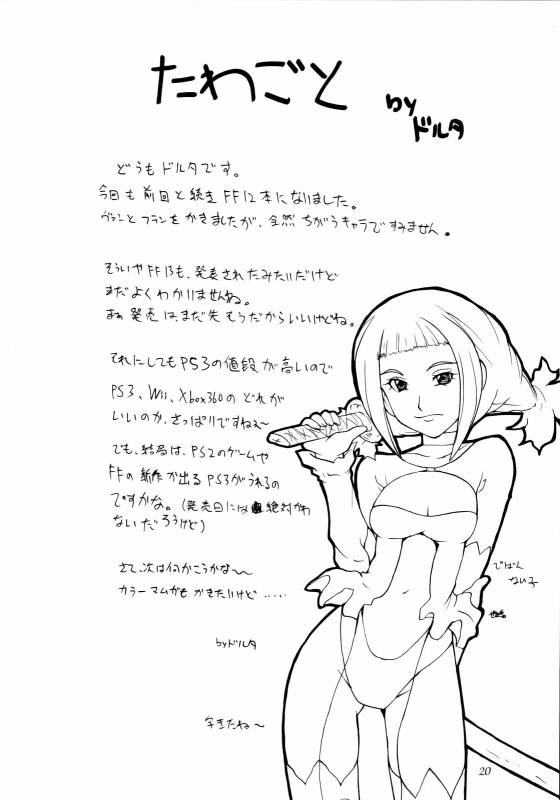 たわごと
by
ドルタ
どうも ドルタです。
今回も前回と続き FF12本になりました。
ヴァンと フランを かきましたが、全然 ちがうキャラですみません。
そういや FF13も、発表されたみたいだけど
まだよくわかりませんね。
まぁ 発売は、まだ先 そうだからいいけどね。
それにしてもPS3の値段が高いので
PS3、Wii、Xbox360の どれが
いいのか、さっぱりですねぇ〜
でも、結局は、PS2のゲームや
FFの新作が出るPS3がうれるの
ですかな。(発売日には絶対かわ
ないだろうけど)
さて、次は何かこうかな〜〜
カラーマンガも かきたいけど .....
byドルタ
でばん
ない子
20